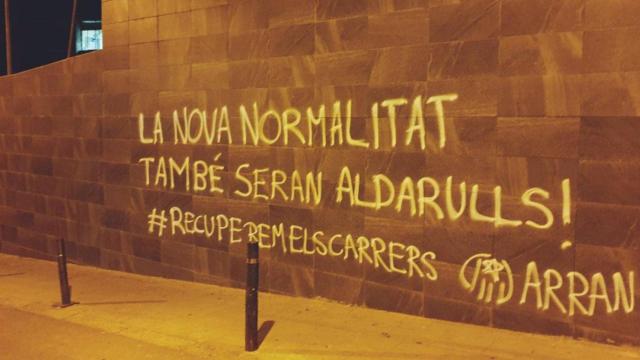 LA NOVA NORMALITAT
TAMBÉ SERAN ALDARULLS!
#RECUPEREMELSCARRERS ARRAN